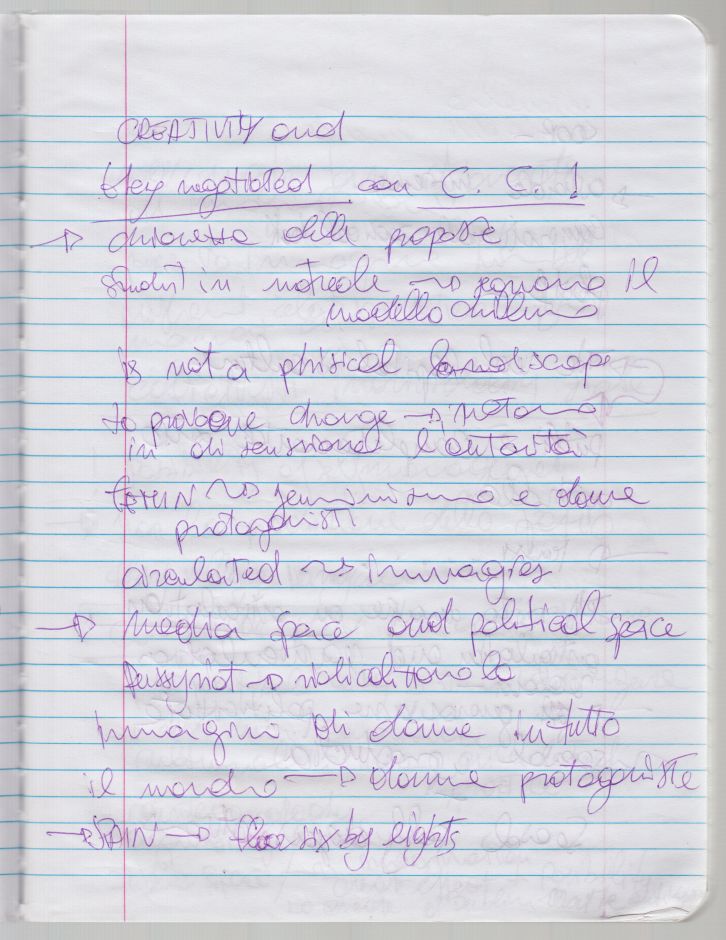 CREATIVITY and
they negotiated con C. C.!
→ chiarezza delle proposte
student in notreale ~> seguono il
modello chileno
is not a phisical landiscape
to provoque change →
in di sensional l'autorità
~> femminismo e donne
protagonisti
circulated ~> immagies
→ media space and political space
pussyriot → ridicolizzano la
immagini di donne in tutto
il mondo → donne protagoniste
→ SPAIN → six by eights